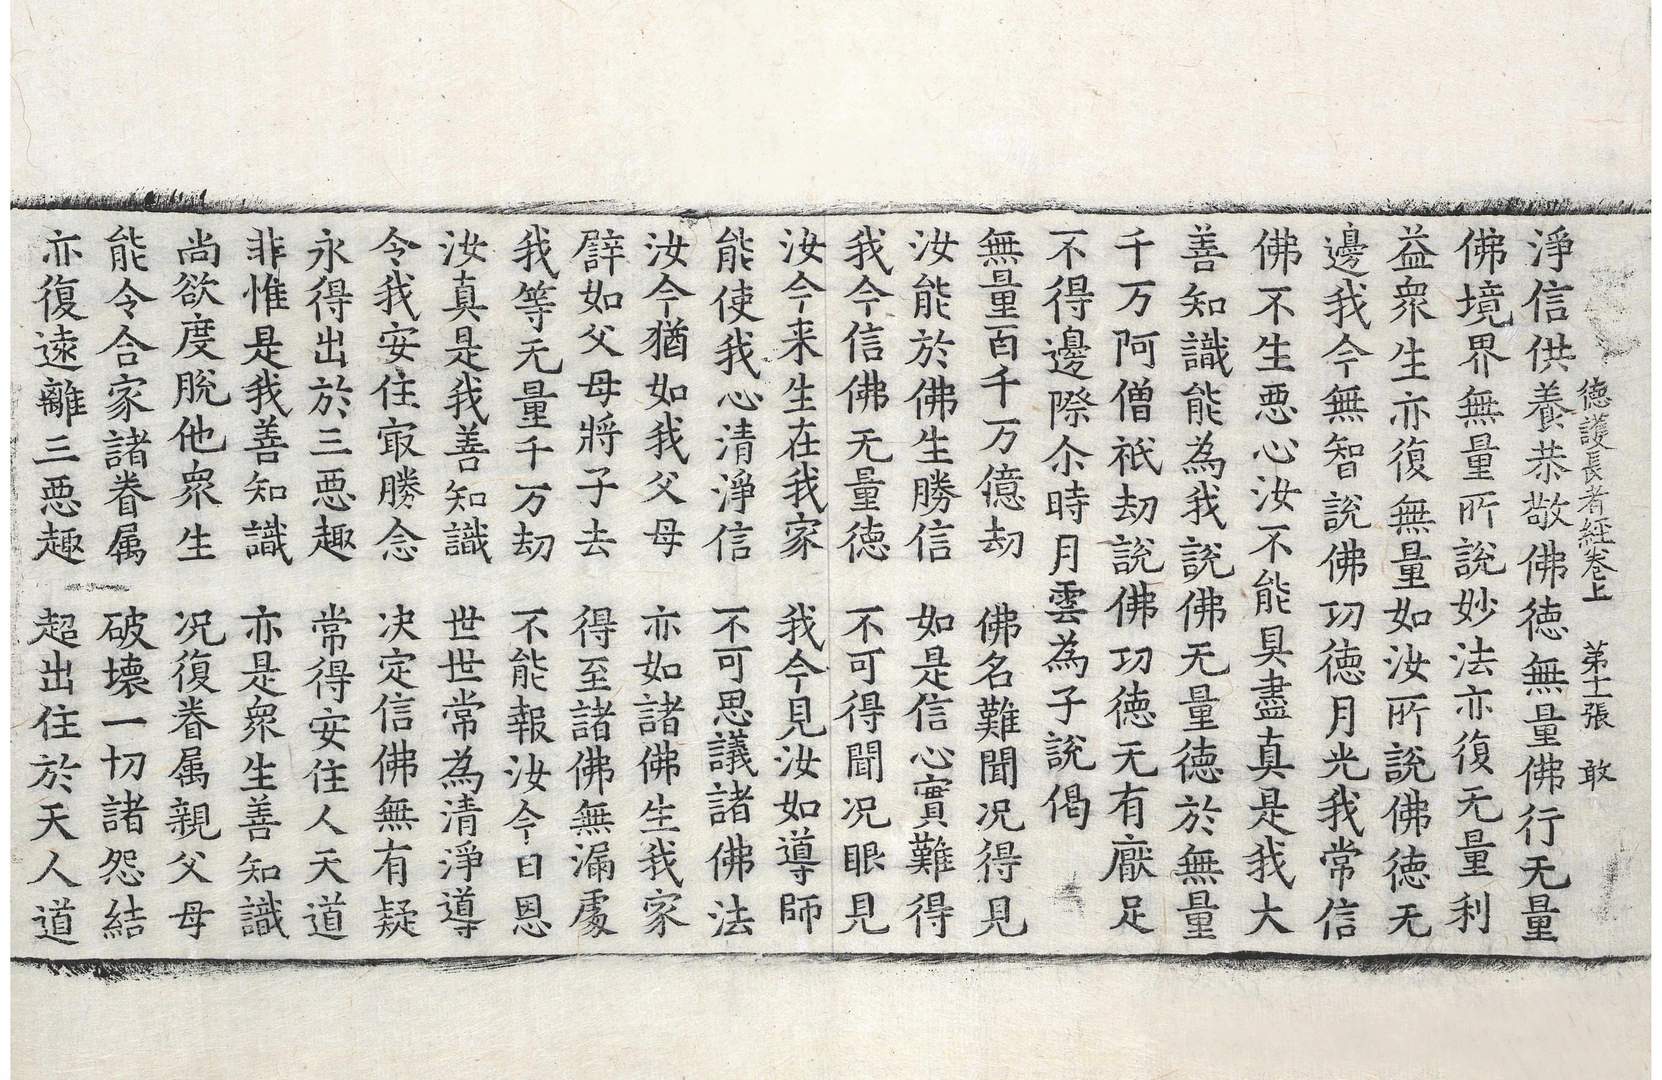 德護長者經卷上　第十二張　敢
淨信供養恭敬佛德無量佛行无量
佛境界無量所說妙法亦復无量利
益衆生亦復無量如汝所說佛德无
邊我今無智說佛功德月光我常信
佛不生惡心汝不能具盡真是我大
善知識能為我說佛无量德於無量
千万阿僧祇劫說佛功德无有厭足
不得邊際尒時月雲為子說偈
無量百千万億劫　佛名難聞况得見
汝能於佛生勝信　如是信心實難得
我今信佛无量德　不可得聞况眼見
汝今来生在我家　我今見汝如導師
能使我心清淨信　不可思議諸佛法
汝今猶如我父母　亦如諸佛生我家
譬如父母將子去　得至諸佛無漏處
我等无量千万劫　不能報汝今日恩
汝真是我善知識　世世常為清淨導
令我安住㝡勝念　决定信佛無有疑
永得出於三惡趣　常得安住人天道
非惟是我善知識　亦是衆生善知識
尚欲度脫他衆生　况復眷属親父母
能令合家諸眷属　破壞一切諸怨結
亦復遠離三惡趣　超出住於天人道